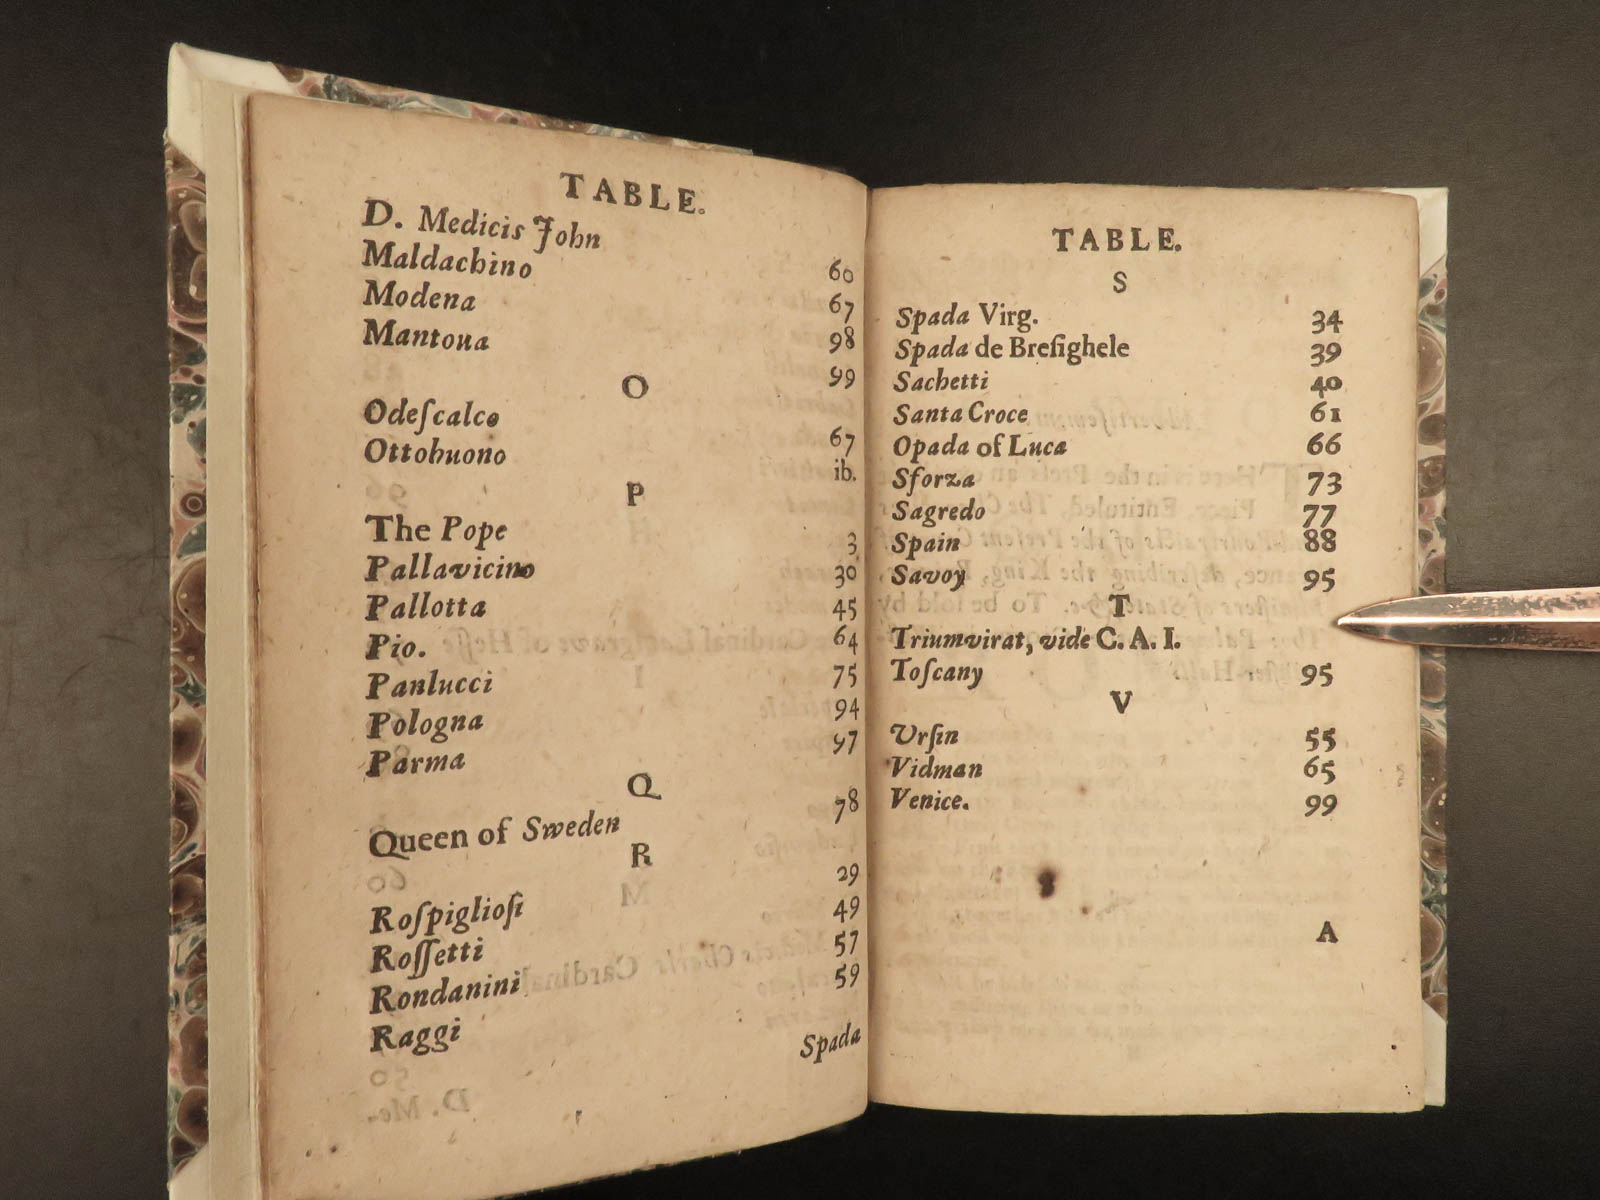 TABLE.
D. Medicis John 60
Maldachino 67
Modena 98
Mantoua 99
O
Odeſcalco 67
Ottobuono ib.
P
The Pope 3
Pallavicino 30
Pallotta 45
Pio. 64
Panlucci 75
Pologna 94
Parma 97
Q
Queen of Sweden 78
R
Roſpiglioſi 29
Roſſetti 49
Rondanini 57
Raggi 59
Spada
TABLE.
S
Spada Virg. 34
Spada de Breſighele 39
Sachetti 40
Santa Croce 61
Opada of Luca 66
Sforza 73
Sagredo 77
Spain 88
Savoy 95
T
Triumvirat, vide C. A. I.
Toſcany 95
V
Vrſin 55
Vidman 65
Venice. 99
A